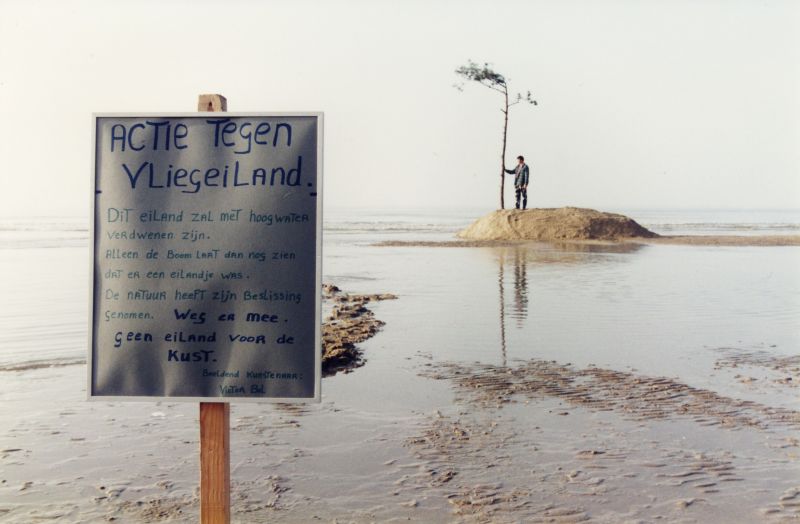 ACTIE TEGEN
VLIEGEILAND.
DIT EILAND ZAL MET HOOGWATER
VERDWENEN ZIJN.
ALLEEN DE BOOM LAAT DAN NOG ZIEN
DAT ER EEN EILANDJE WAS.
DE NATUUR HEEFT ZIJN BESLISSING
GENOMEN. WEG ER MEE.
GEEN EILAND VOOR DE
KUST.
BEELDEND KUNSTENAAR:
VICTOR BOL